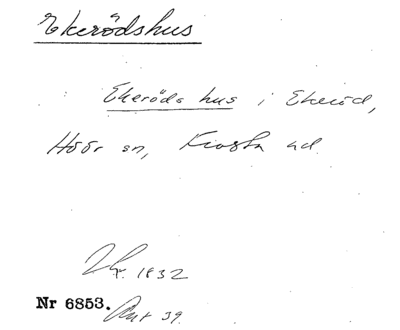 Ekerödshus
Ekeröds hus i Ekeröd,
Höör sn, Frosta hd.
1832
Nr 6853. Ant 39.